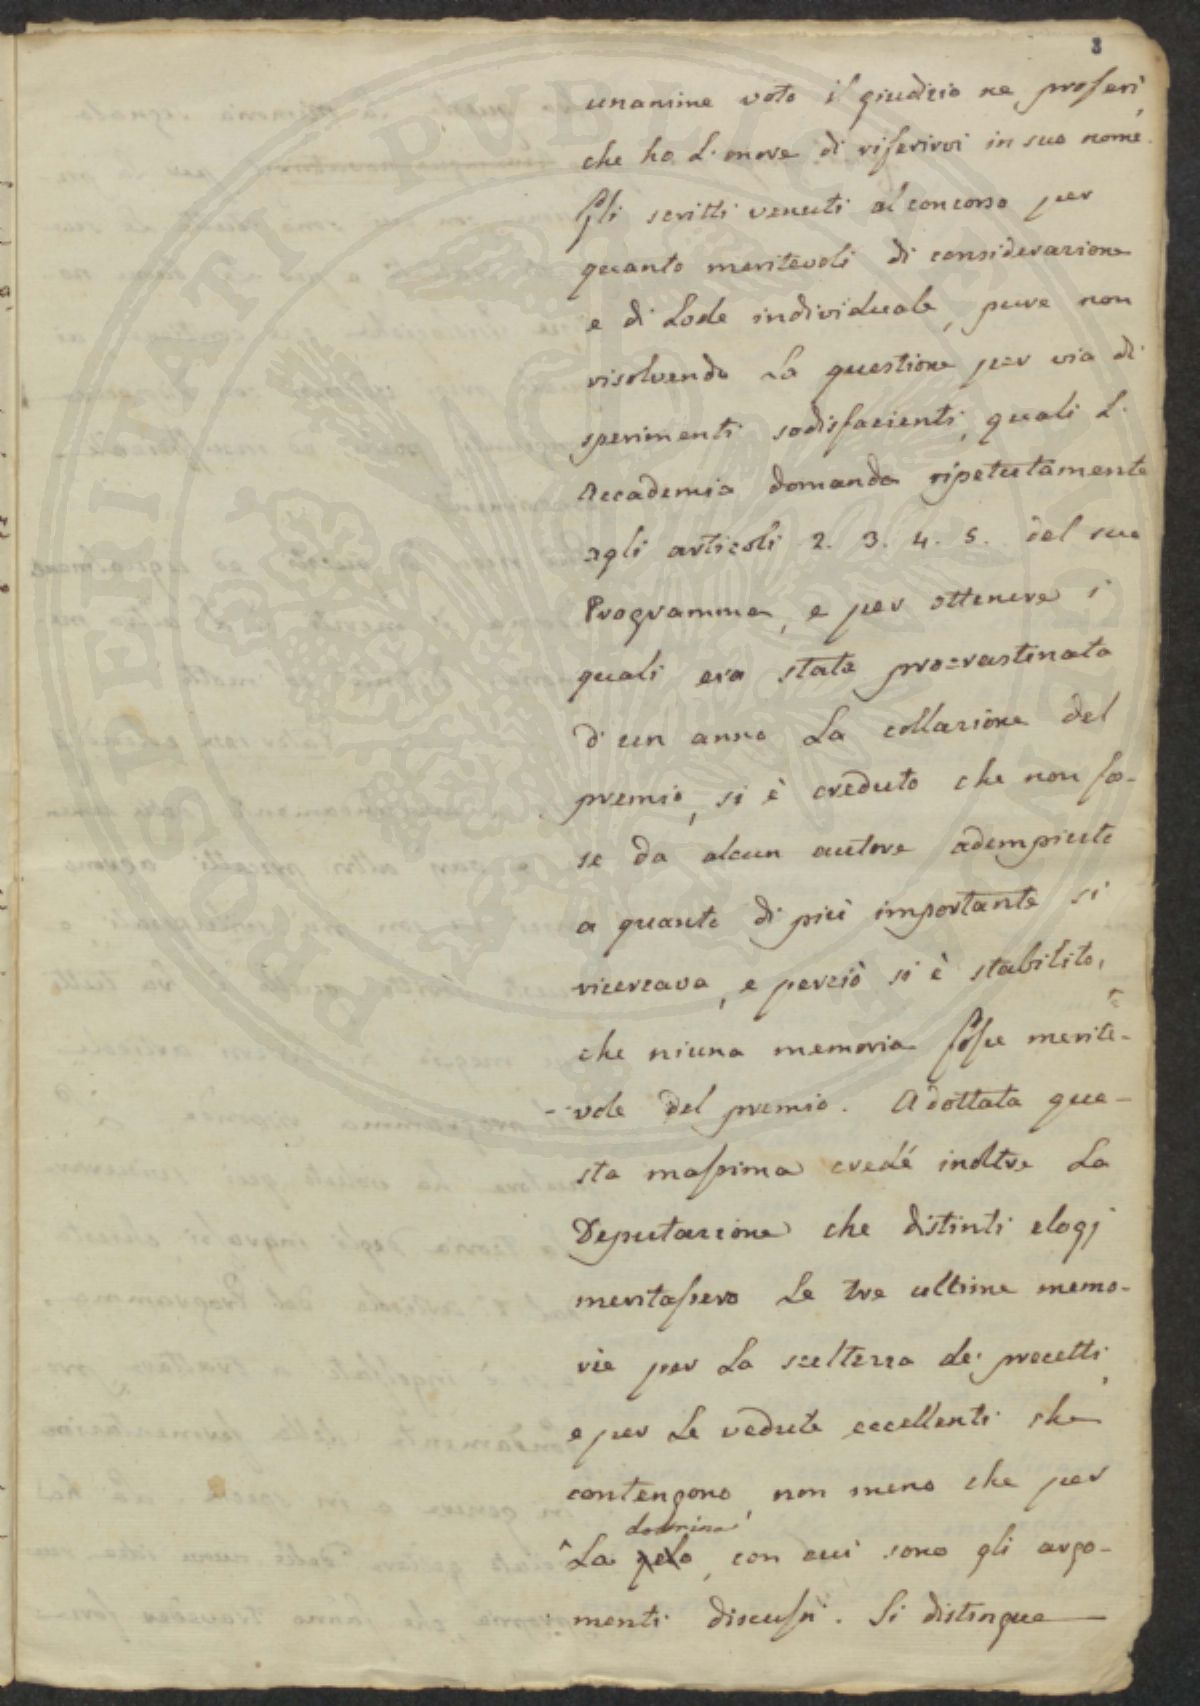 3
unanime voto il giudizio ne proferì,
che ho L'onore di riferirvi in suo nome.
Gli scritti venuti al concorso per
quanto meritevoli di considerazione
e di Lode individuale, pure non
risolvendo La questione per via di
sperimenti sodisfacienti, quali L'
Accademia domanda ripetutamente
agli articoli 2. 3. 4. 5. del suo
Programma, e per ottenere i
quali era stata procrastinata
d'un anno La collazione del
premio, si è creduto che non fo-
se da alcun autore adempiuto
a quanto di più importante si
ricercava, e perciò si è stabilito,
che niuna memoria fosse merite-
vole del premio. Adottata que-
sta massima credé inoltre La
Deputazione che distinti elogj
meritassero Le tre ultime memo-
rie per La sceltezza de' precetti,
e per Le vedute eccellenti che
contengono, non meno che per
dottrina
La zelo, con cui sono gli argo-
menti discussi. Si distingue
PROSPERITATI PUBLICAE AUGENDAE